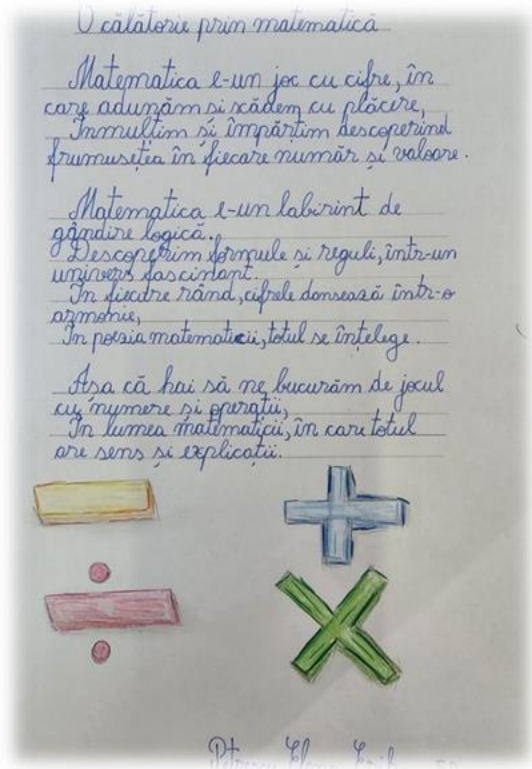 O călătorie prin matematică
Matematica e-un joc cu cifre, în
care adunăm și scădem cu plăcere,
Înmulțim și împărțim descoperind
frumusețea în fiecare număr și valoare.
Matematica e-un labirint de
gândire logică.
Descoperim formule și reguli, într-un
univers fascinant.
În fiecare rând, cifrele dansează într-o
armonie,
În poezia matematicii, totul se înțelege.
Așa că hai să ne bucurăm de jocul
cu numere și operații,
În lumea matematicii, în care totul
are sens și explicații.
Elena